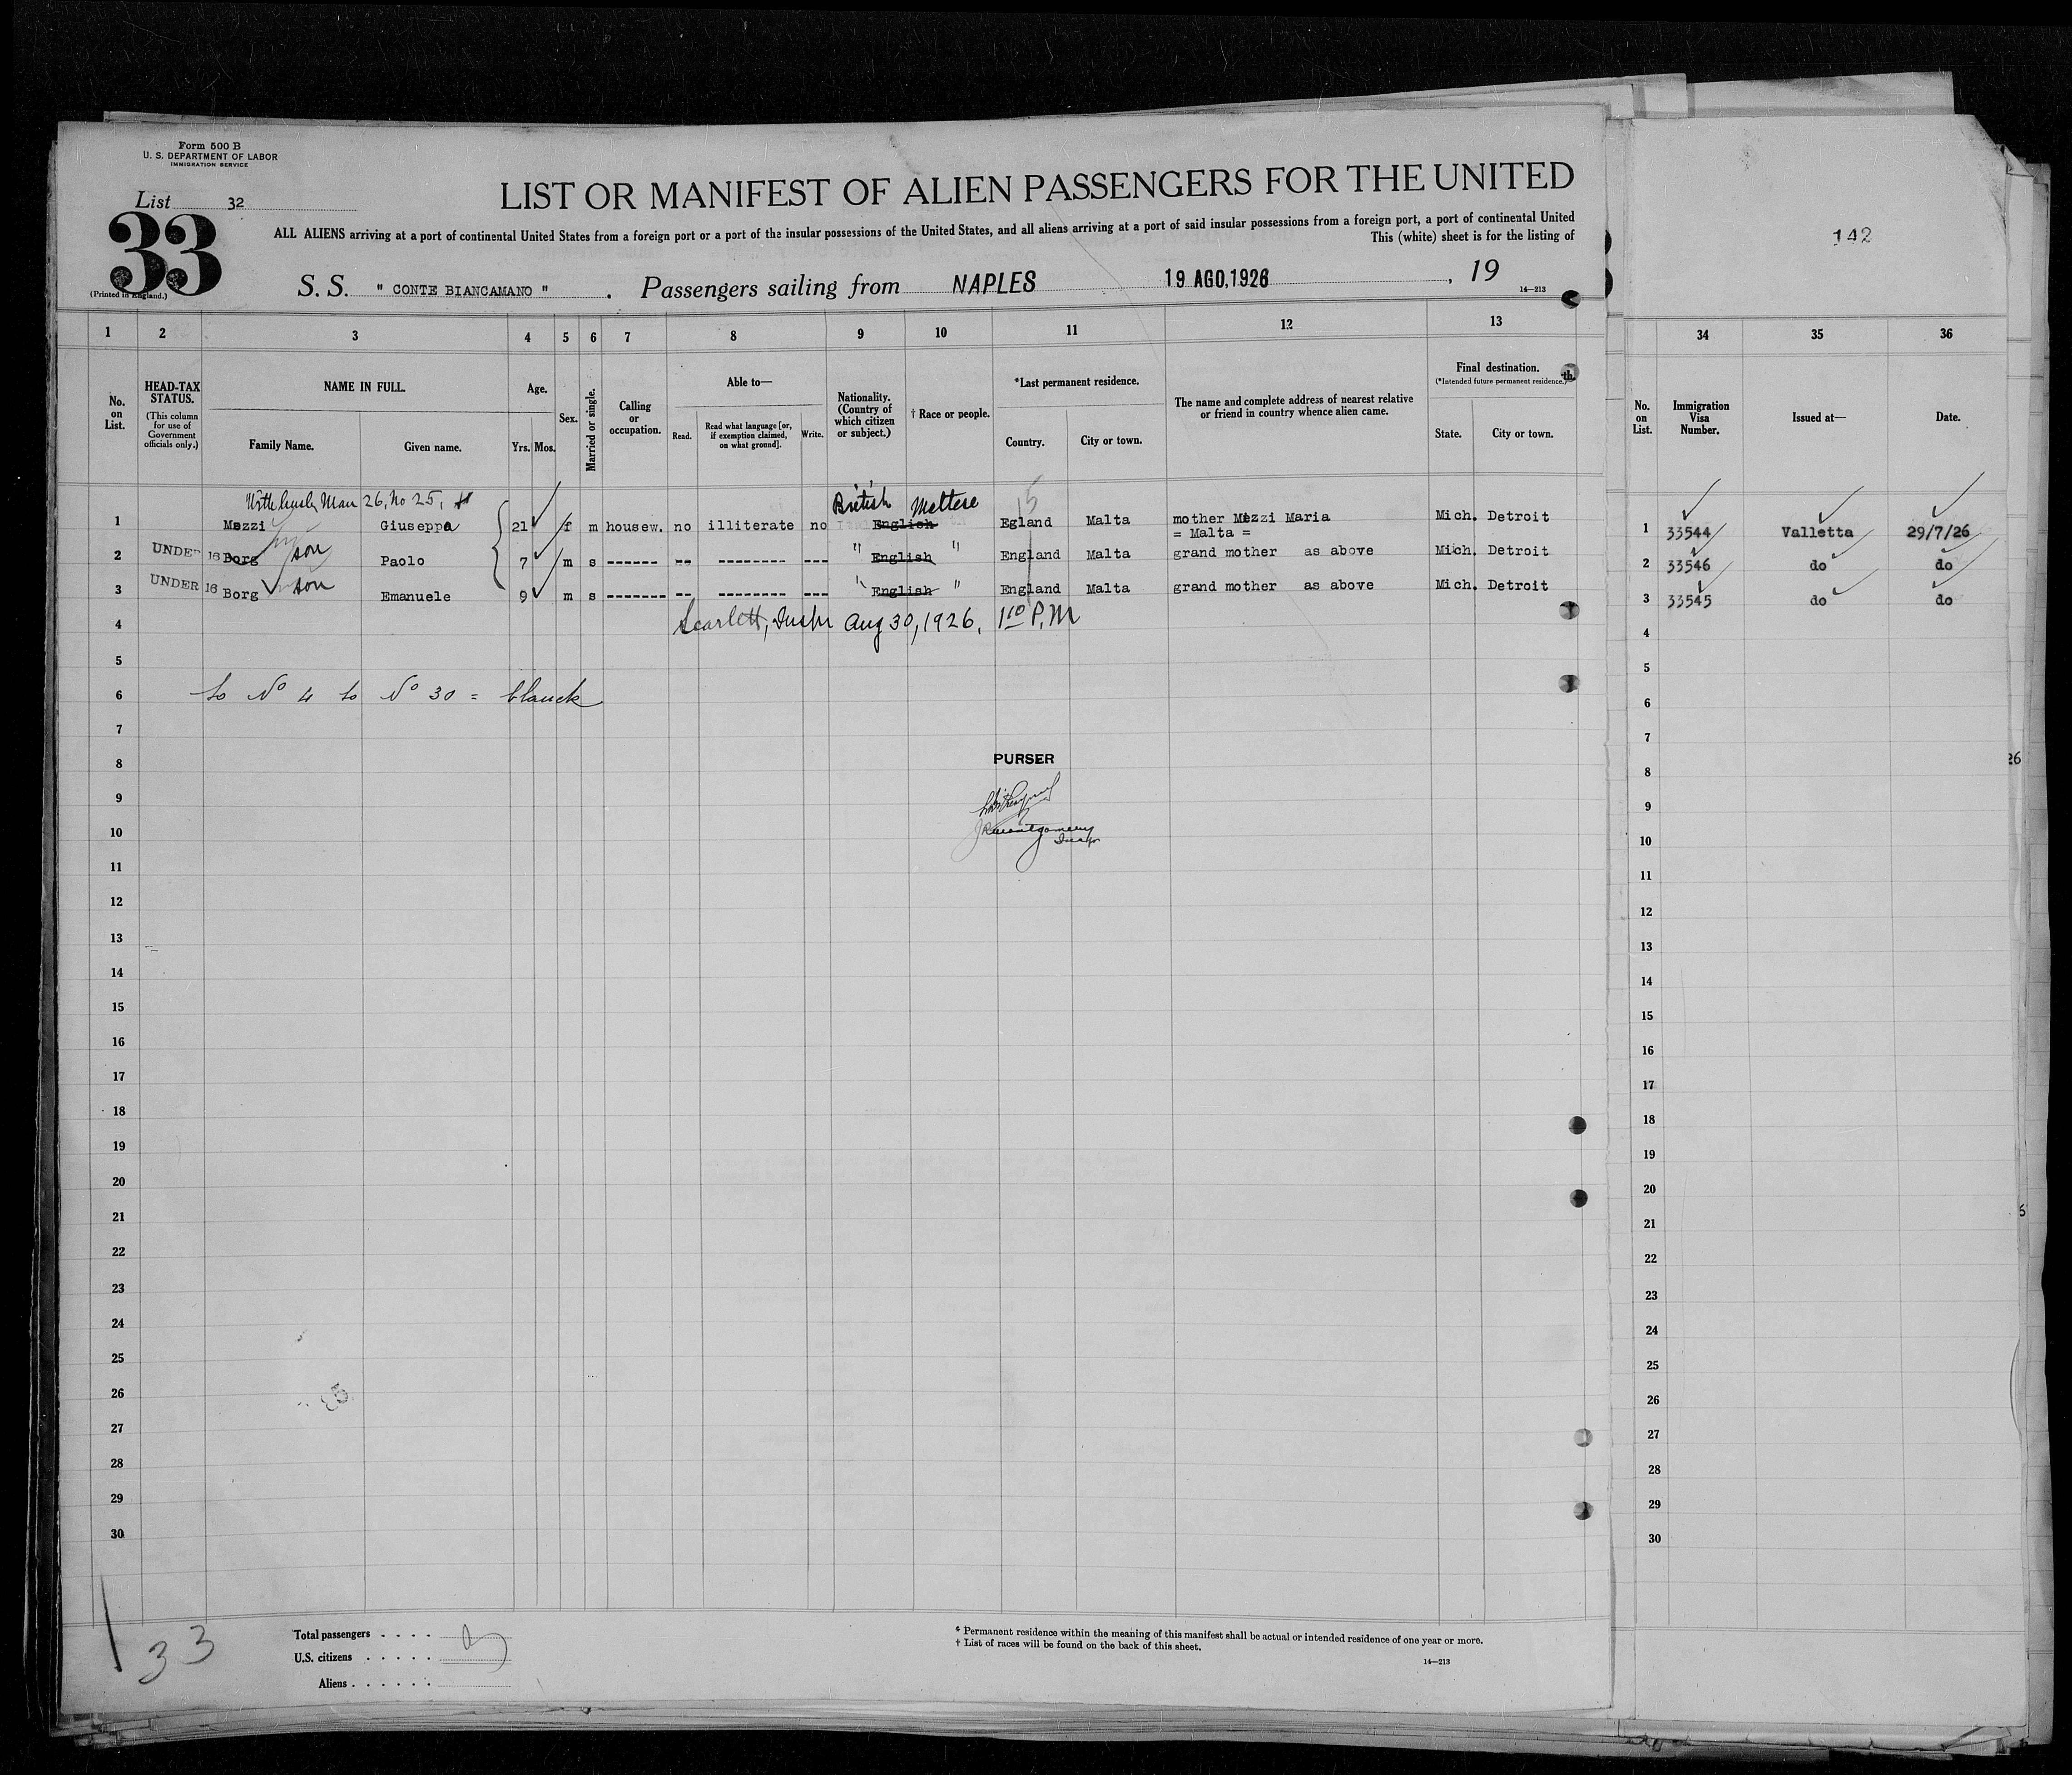 Form 500 B
U. S. DEPARTMENT OF LABOR
IMMIGRATION SERVICE
List 32
33
(Printed in England.)
LIST OR MANIFEST OF ALIEN PASSENGERS FOR THE UNITED
ALL ALIENS arriving at a port of continental United States from a foreign port or a port of the insular possessions of the United States, and all aliens arriving at a port of said insular possessions from a foreign port, a port of continental United
This (white) sheet is for the listing of
142
S. S. " CONTE BIANCAMANO " . Passengers sailing from NAPLES 19 AGO. 1926 , 19
14—213
1 2 3 4 5 6 7 8 9 10 11 12 13 34 35 36
No. on List.
HEAD-TAX STATUS.
(This column for use of Government officials only.)
NAME IN FULL.
Family Name. Given name.
Age.
Yrs. Mos.
Sex.
Married or single.
Calling or occupation.
Able to—
Read. Read what language [or, if exemption claimed, on what ground]. Write.
Nationality. (Country of which citizen or subject.)
† Race or people.
*Last permanent residence.
Country. City or town.
The name and complete address of nearest relative or friend in country whence alien came.
Final destination.
(*Intended future permanent residence.)
th.
State. City or town.
No. on List.
Immigration Visa Number.
Issued at—
Date.
Man 26, No 25, British Maltese 15
1 Mezzi Giuseppa 21 f m housew. no illiterate no English Egland Malta mother Mezzi Maria Mich. Detroit 1 33544 Valletta 29/7/26
= Malta =
2 UNDER 16 Borg son Paolo 7 m s ------ -- -------- --- " English " England Malta grand mother as above Mich. Detroit 2 33546 do do
3 UNDER 16 Borg son Emanuele 9 m s ------- -- -------- --- " English " England Malta grand mother as above Mich. Detroit 3 33545 do do
4 Scarlett, Inspr Aug 30, 1926, 1 10 P.M 4
5 5
6 to No 4 to No 30 = blanck 6
7 7
8 PURSER 8 26
9 9
10 JR Montgomery 10
Inspr
11 11
12 12
13 13
14 14
15 15
16 16
17 17
18 18
19 19
20 20
21 21 6
22 22
23 23
24 24
25 25
26 26
27 27
28 28
29 29
30 30
33
Total passengers . . . .
U.S. citizens . . . . .
Aliens . . . . . .
* Permanent residence within the meaning of this manifest shall be actual or intended residence of one year or more.
† List of races will be found on the back of this sheet.
14—213